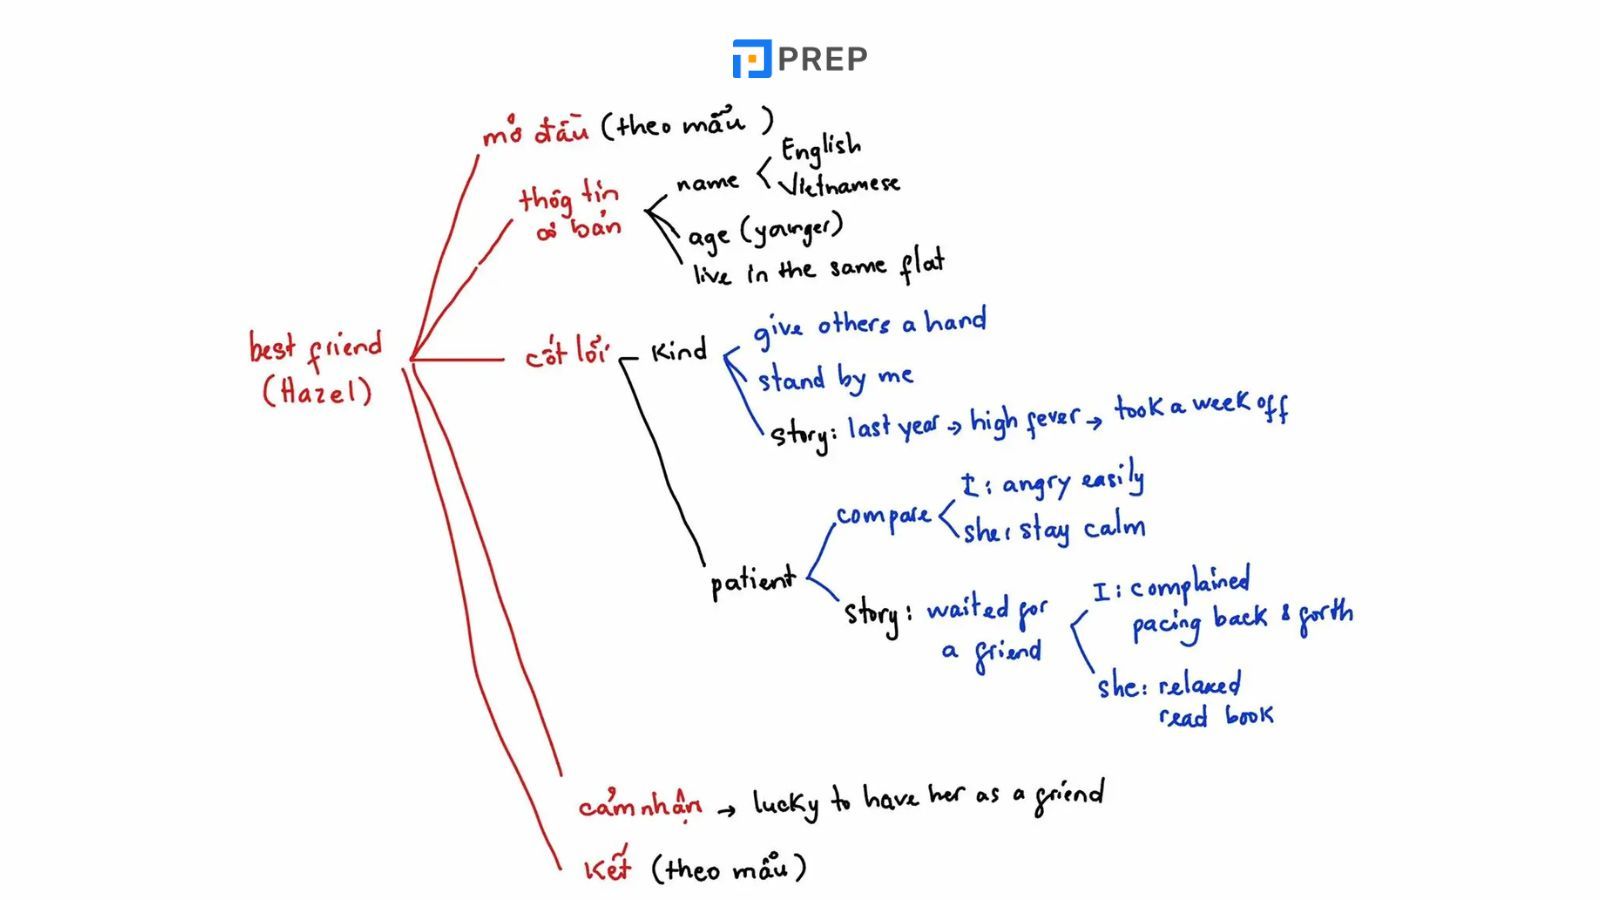 PREP
mở đầu (theo mẫu)
thôg tin
cơ bản
name
English
Vietnamese
age (younger)
live in the same flat
best friend
(Hazel)
cốt lõi
Kind
give others a hand
stand by me
story: last year → high fever → took a week off
patient
compare
I: angry easily
she: stay calm
story: waited for
a friend
I: complained
pacing back & forth
she: relaxed
read book
cảm nhận → lucky to have her as a friend
Kết (theo mẫu)